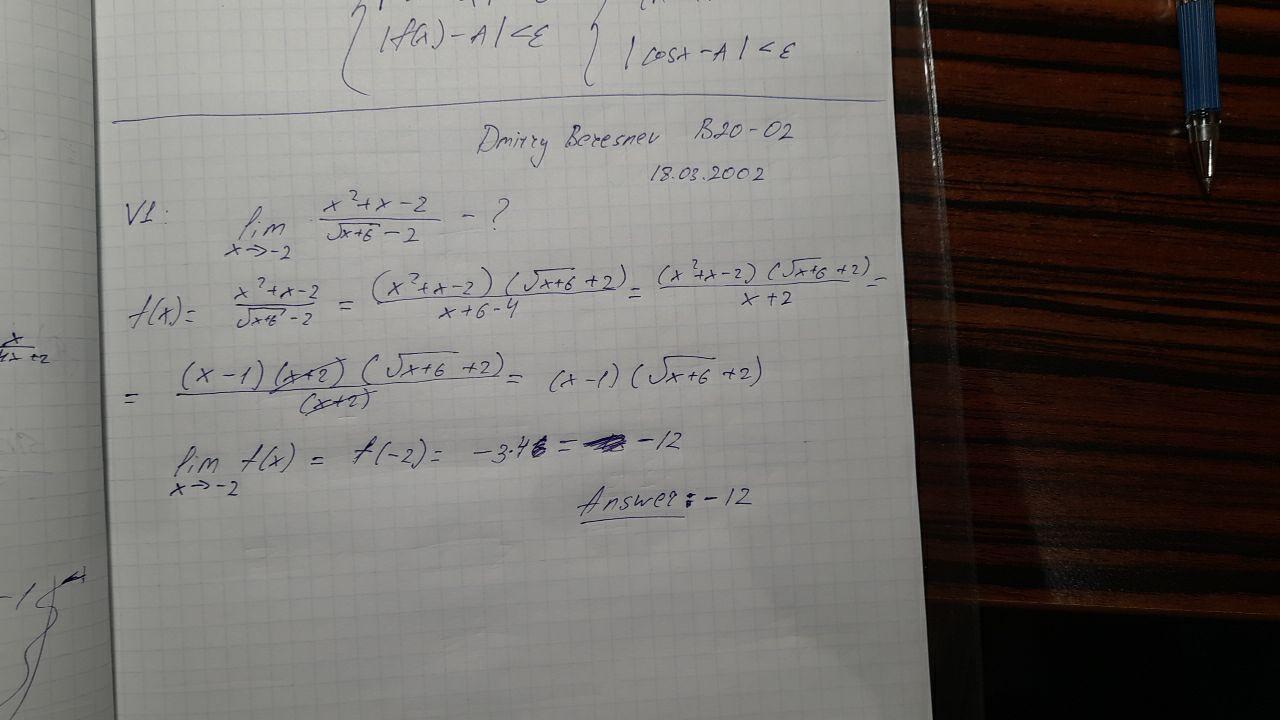 |f(x)-A|<ε |cosx-A|<ε
Dmitry Beresnev B20-02
18.03.2002
V1: lim x→-2 (x²+x-2)/(√(x+6)-2) - ?
f(x)= (x²+x-2)/(√(x+6)-2) = (x²+x-2)(√(x+6)+2)/(x+6-4) = (x²+x-2)(√(x+6)+2)/(x+2) =
= (x-1)(x+2)(√(x+6)+2)/(x+2) = (x-1)(√(x+6)+2)
lim x→-2 f(x) = f(-2)= -3·4 = -12
Answer: -12